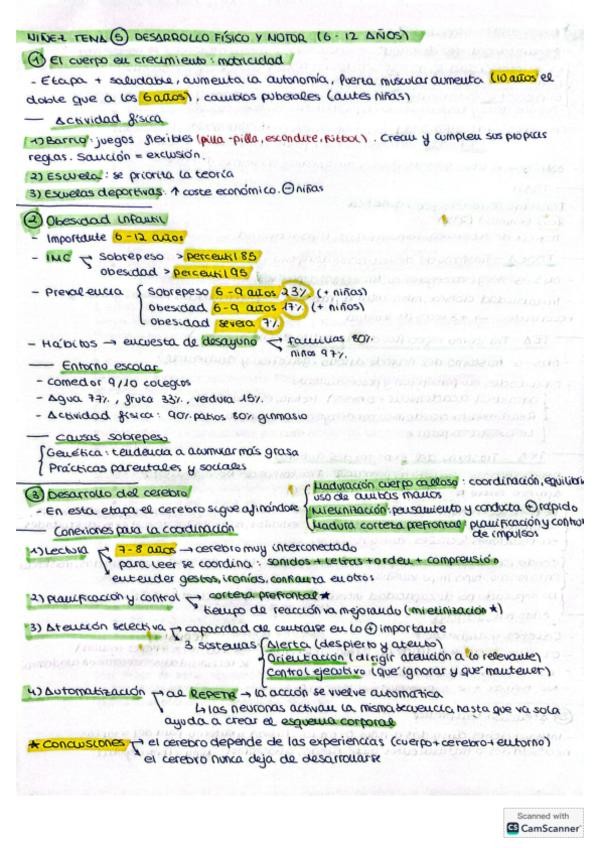 NIÑEZ TEMA 5 DESARROLLO FÍSICO Y MOTOR (6-12 AÑOS)
1 El cuerpo en crecimiento: motricidad
- Etapa + saludable, aumenta la autonomía, fuerza muscular aumenta (10 años el
doble que a los 6 años), cambios puberales (antes niñas)
— Actividad física
1) Barrio: juegos flexibles (pilla-pilla, escondite, fútbol). Crean y cumplen sus propias
reglas. Sanción = exclusión.
2) Escuela: se prioriza la teoría
3) Escuelas deportivas: ↑ coste económico. ⊖ niñas
2 Obesidad Infantil
- Importante 6-12 años
- IMC Sobrepeso > percentil 85
obesidad > percentil 95
- Prevalencia { Sobrepeso 6-9 años 23% (+ niñas)
obesidad 6-9 años 17% (+ niños)
obesidad severa 7%
- Hábitos → encuesta de desayuno familias 80%
niños 97%
— Entorno escolar
- Comedor 9/10 colegios
- Agua 77%, fruta 33%, verdura 15%
- Actividad física: 90% patios 80% gimnasio
— Causas sobrepeso
{ Genética: tendencia a acumular más grasa
Prácticas parentales y sociales
3 Desarrollo del cerebro
- En esta etapa el cerebro sigue afinándose
{ Maduración cuerpo calloso: coordinación, equilibrio
uso de ambas manos
Mielinización: pensamiento y conducta rápido
Madura corteza prefrontal: planificación y control
de impulsos
— Conexiones para la coordinación
1) Lectura 7-8 años → cerebro muy interconectado
para leer se coordina: sonidos + letras + orden + comprensión
entender gestos, ironías, confianza en otros
2) Planificación y control corteza prefrontal ★
tiempo de reacción va mejorando (mielinización ★)
3) Atención selectiva capacidad de centrarse en lo ⊕ importante
3 sistemas { Alerta (despierto y atento)
Orientación (dirigir atención a lo relevante)
Control ejecutivo (qué ignorar y qué mantener)
4) Automatización → al REPETIR → la acción se vuelve automática
↳ las neuronas activan la misma secuencia hasta que va sola
ayuda a crear el esquema corporal
★ Conclusiones el cerebro depende de las experiencias (cuerpo+cerebro+entorno)
el cerebro nunca deja de desarrollarse
Scanned with
CS CamScanner